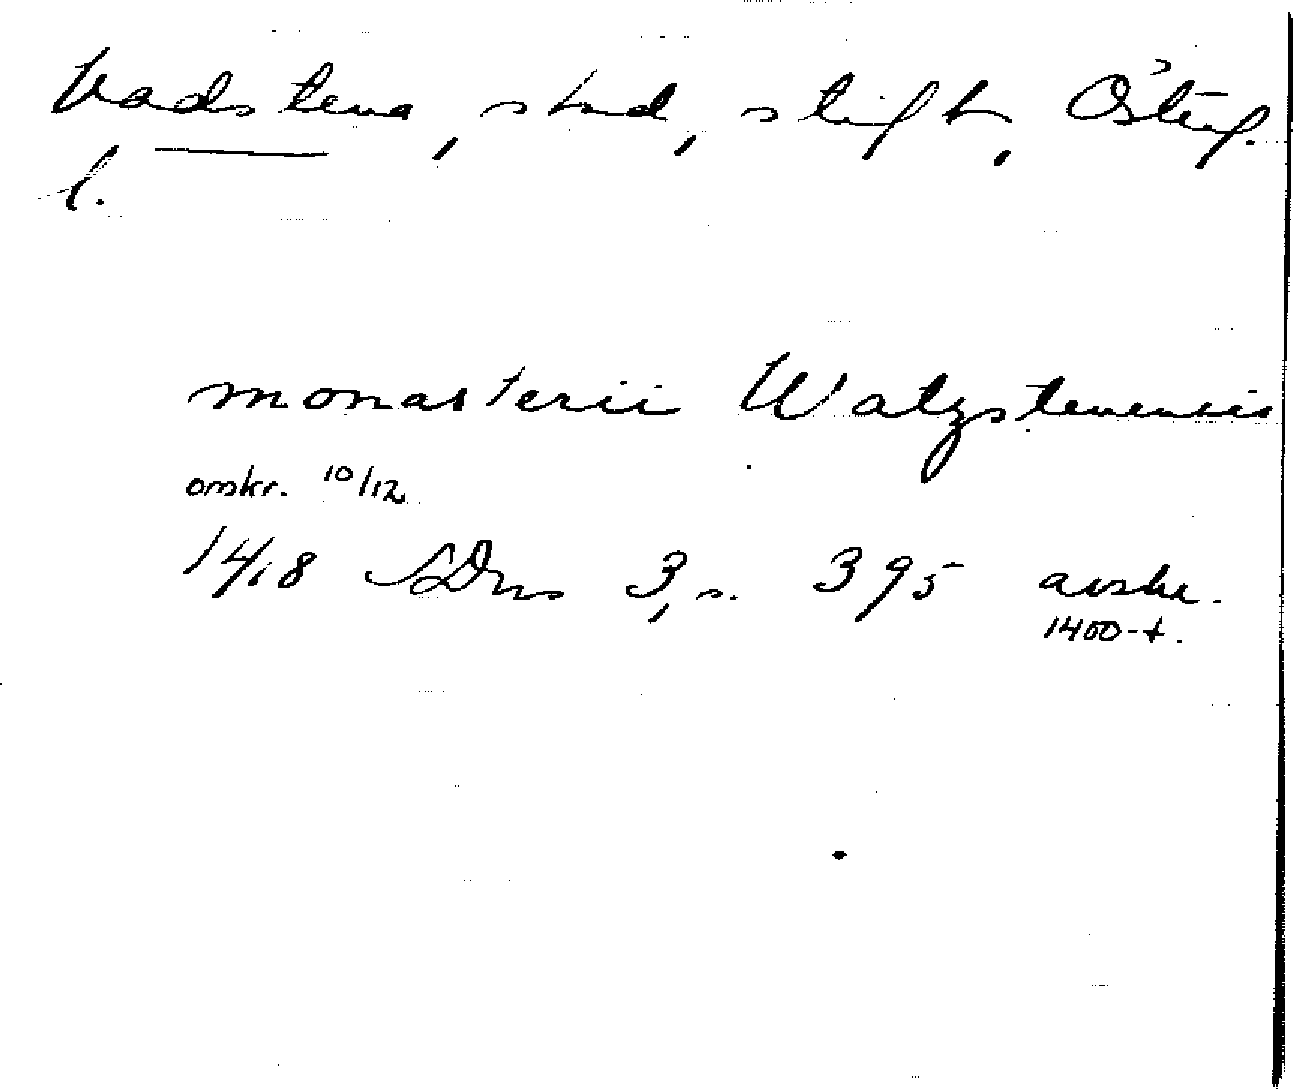 Vadstena, stad, stift, Österg.
l.
monasterii Watzstenensis
omskr. 10/12
1418 SDns 3, s. 395 avskr.
1400-t.